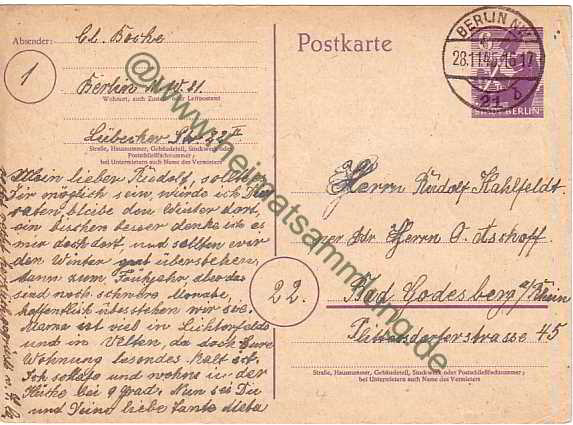 Absender: Cl. Boche
1
Berlin N.W. 21.
Wohnort, auch Zustell- oder Leitpostamt
Lübecker Str. 22 II
Straße, Hausnummer, Gebäudeteil, Stockwerk oder
Postschließfachnummer;
bei Untermietern auch Name des Vermieters
Mein lieber Rudolf, sollte es
Dir möglich sein, würde ich Dir
raten, bleibe den Winter dort,
ein bischen besser denke ich es
mir doch dort, und sollten wir
den Winter gut überstehen,
dann zum Frühjahr aber das
sind noch schwere Monate,
hoffentlich überstehen wir sie.
ist viel in Lichterfelde
und in Velten, da doch Eure
Wohnung besonders kalt ist.
Ich schlafe und wohne in der
Küche bei 9 Grad. Nun sei Du
und Deine liebe Tante
Postkarte
BERLIN NW
28.11.45.16-17
21 b
STADT BERLIN
Herrn Rudolf Kahlfeldt.
per Adr Herrn O. Asshoff
22.
Bad Godesberg a/Rhein
45
Straße, Hausnummer, Gebäudeteil, Stockwerk oder Postschließfachnummer;
bei Untermietern auch Name des Vermieters
@www.heimatsammlung.de